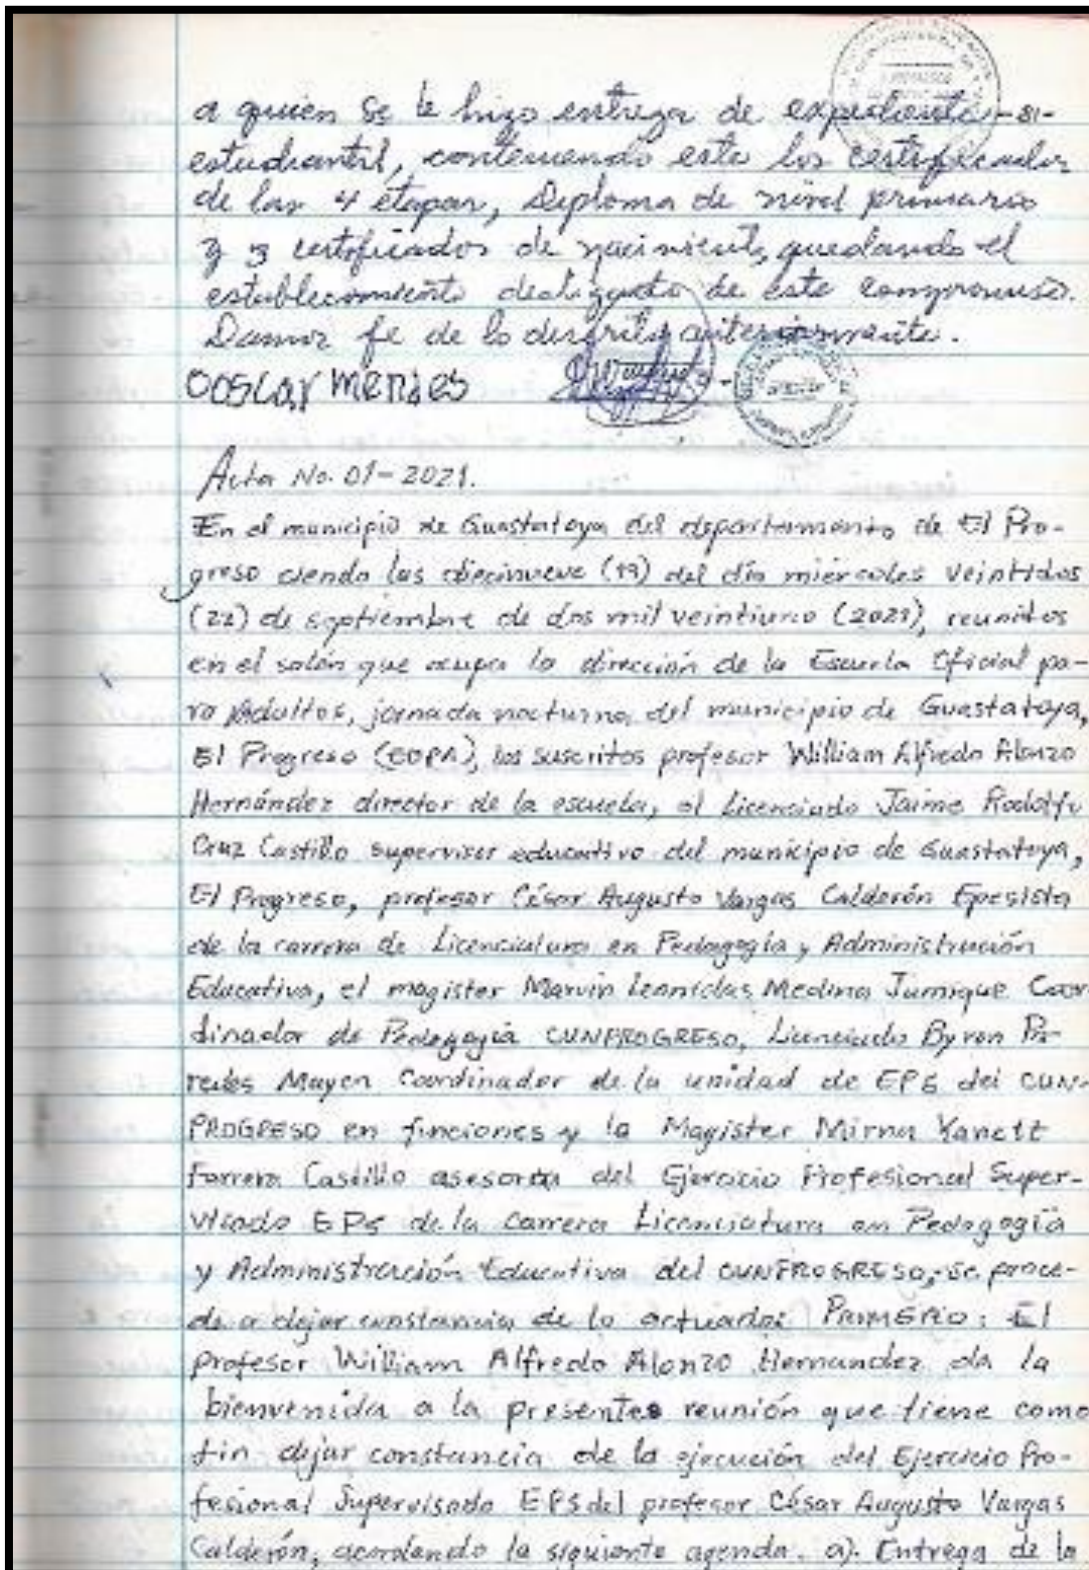 a quien se le hizo entrega de expediente -81-
estudiantil, conteniendo este los certificados
de las 4 etapas, Diploma de nivel primario
y 3 certificados de nacimiento, quedando el
establecimiento desligado de este compromiso.
Damos fe de lo descrito anteriormente.
OOSCAR MENDES
Acta No. 01-2021.
En el municipio de Guastatoya del departamento de El Pro-
greso siendo las diecinueve (19) del día miércoles veintidos
(22) de septiembre de dos mil veintiuno (2021), reunidos
en el salón que ocupa la dirección de la Escuela Oficial pa-
ra Adultos, jornada nocturna del municipio de Guastatoya,
El Progreso (EOPA), los suscritos profesor William Alfredo Alonzo
Hernández director de la escuela, el Licenciado Jaime Rodolfo
Cruz Castillo supervisor educativo del municipio de Guastatoya,
El Progreso, profesor César Augusto Vargas Calderón Epesista
de la carrera de Licenciatura en Pedagogía y Administración
Educativa, el magister Marvin Leonidas Medina Jumique Coor-
dinador de Pedagogía CUNPROGRESO, Licenciado Byron Pa-
redes Mayen Coordinador de la unidad de EPS del CUN-
PROGRESO en funciones y la Magister Mirna Yanett
Farrera Castillo asesora del Ejercicio Profesional Super-
visado EPS de la Carrera Licenciatura en Pedagogía
y Administración Educativa del CUNPROGRESO, se proce-
de a dejar constancia de lo actuado: PRIMERO: El
profesor William Alfredo Alonzo Hernandez da la
bienvenida a la presente reunión que tiene como
fin dejar constancia de la ejecución del Ejercicio Pro-
fesional Supervisado EPS del profesor César Augusto Vargas
Calderón, acordando la siguiente agenda. a). Entrega de la